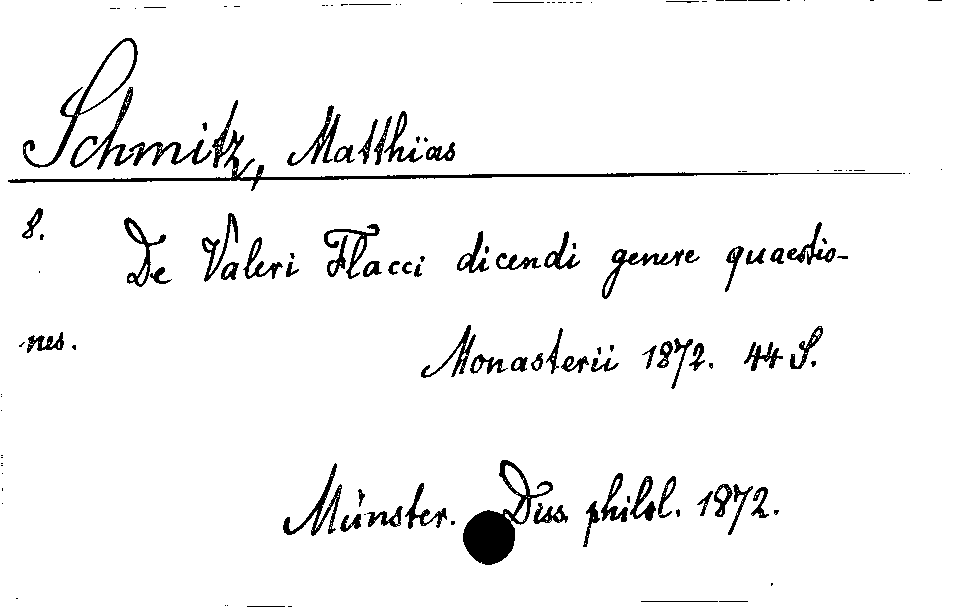 Schmitz, Matthïas
8. De Valeri Flacci dicendi genere quaestio-
nes.
Monasterii 1872. 44 S.
Münster. Diss. philol. 1872.